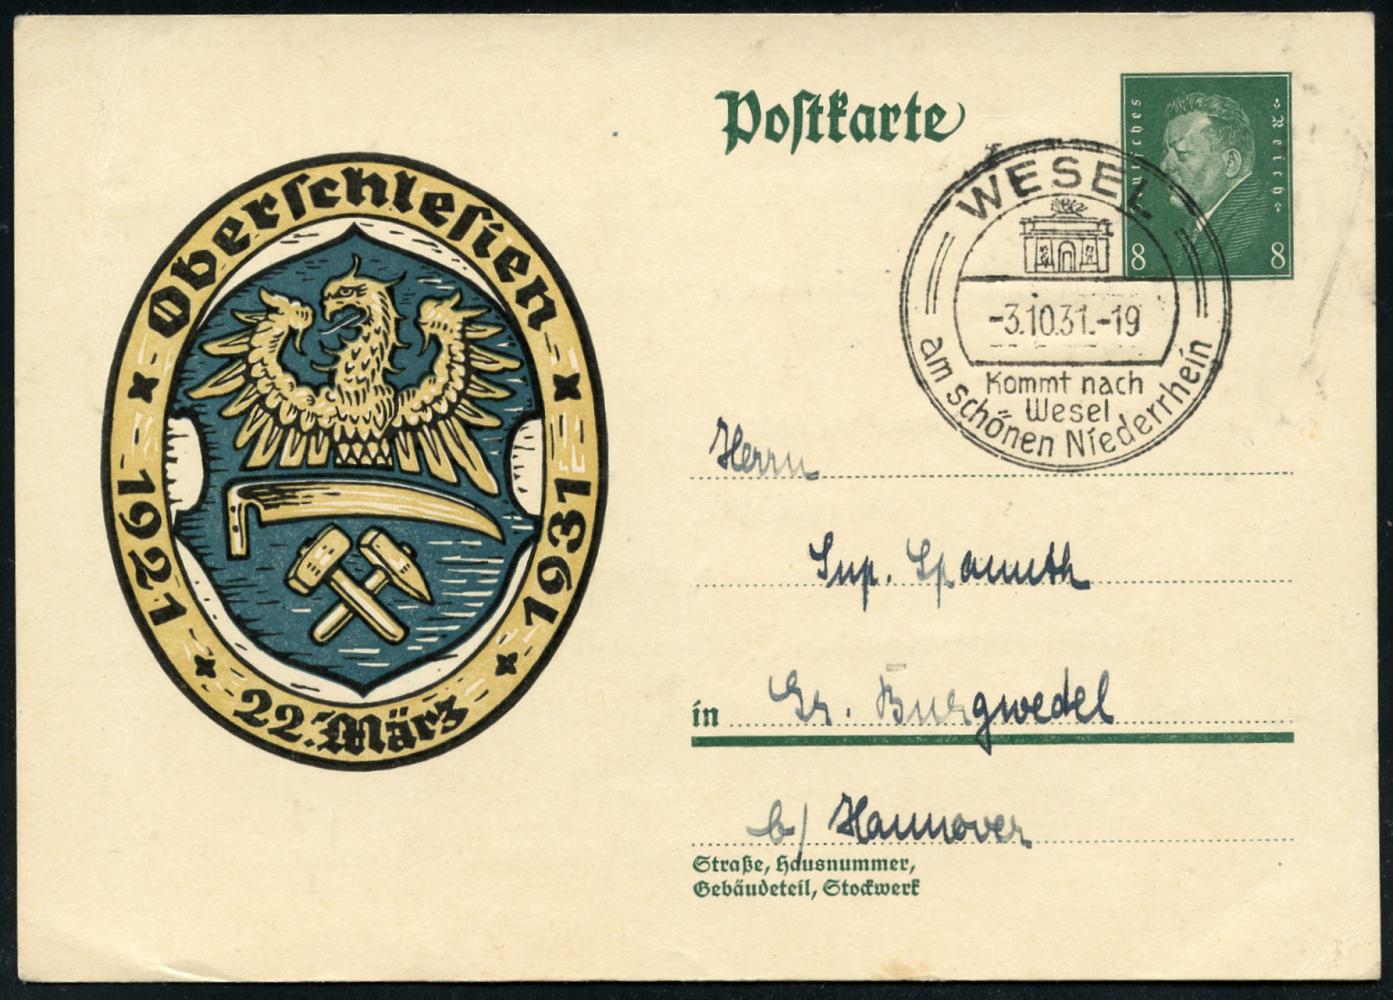 Postkarte
Deutsches Reich
8 8
WESEL
-3.10.31.-19
Kommt nach
Wesel
am schönen Niederrhein
Oberschlesien
1921 1931
22. März
Herrn
Sup. Spanuth
in Gr. Burgwedel
b/ Hannover
Straße, Hausnummer,
Gebäudeteil, Stockwerk